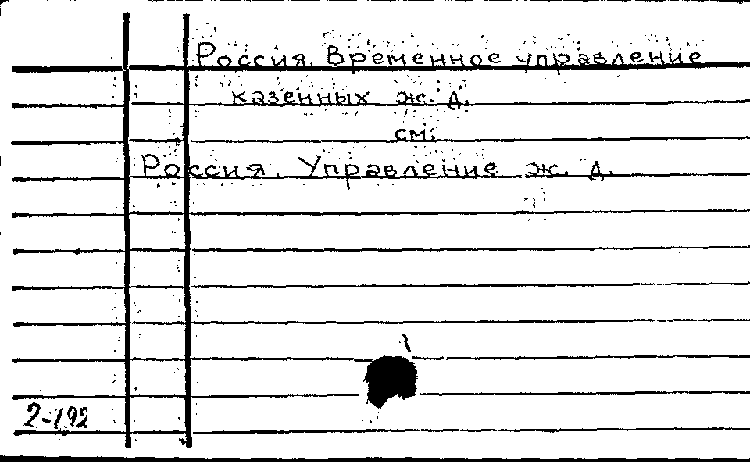 Россия. Временное управление
казенных ж. д.
см:
Россия. Управление ж. д.
2-192